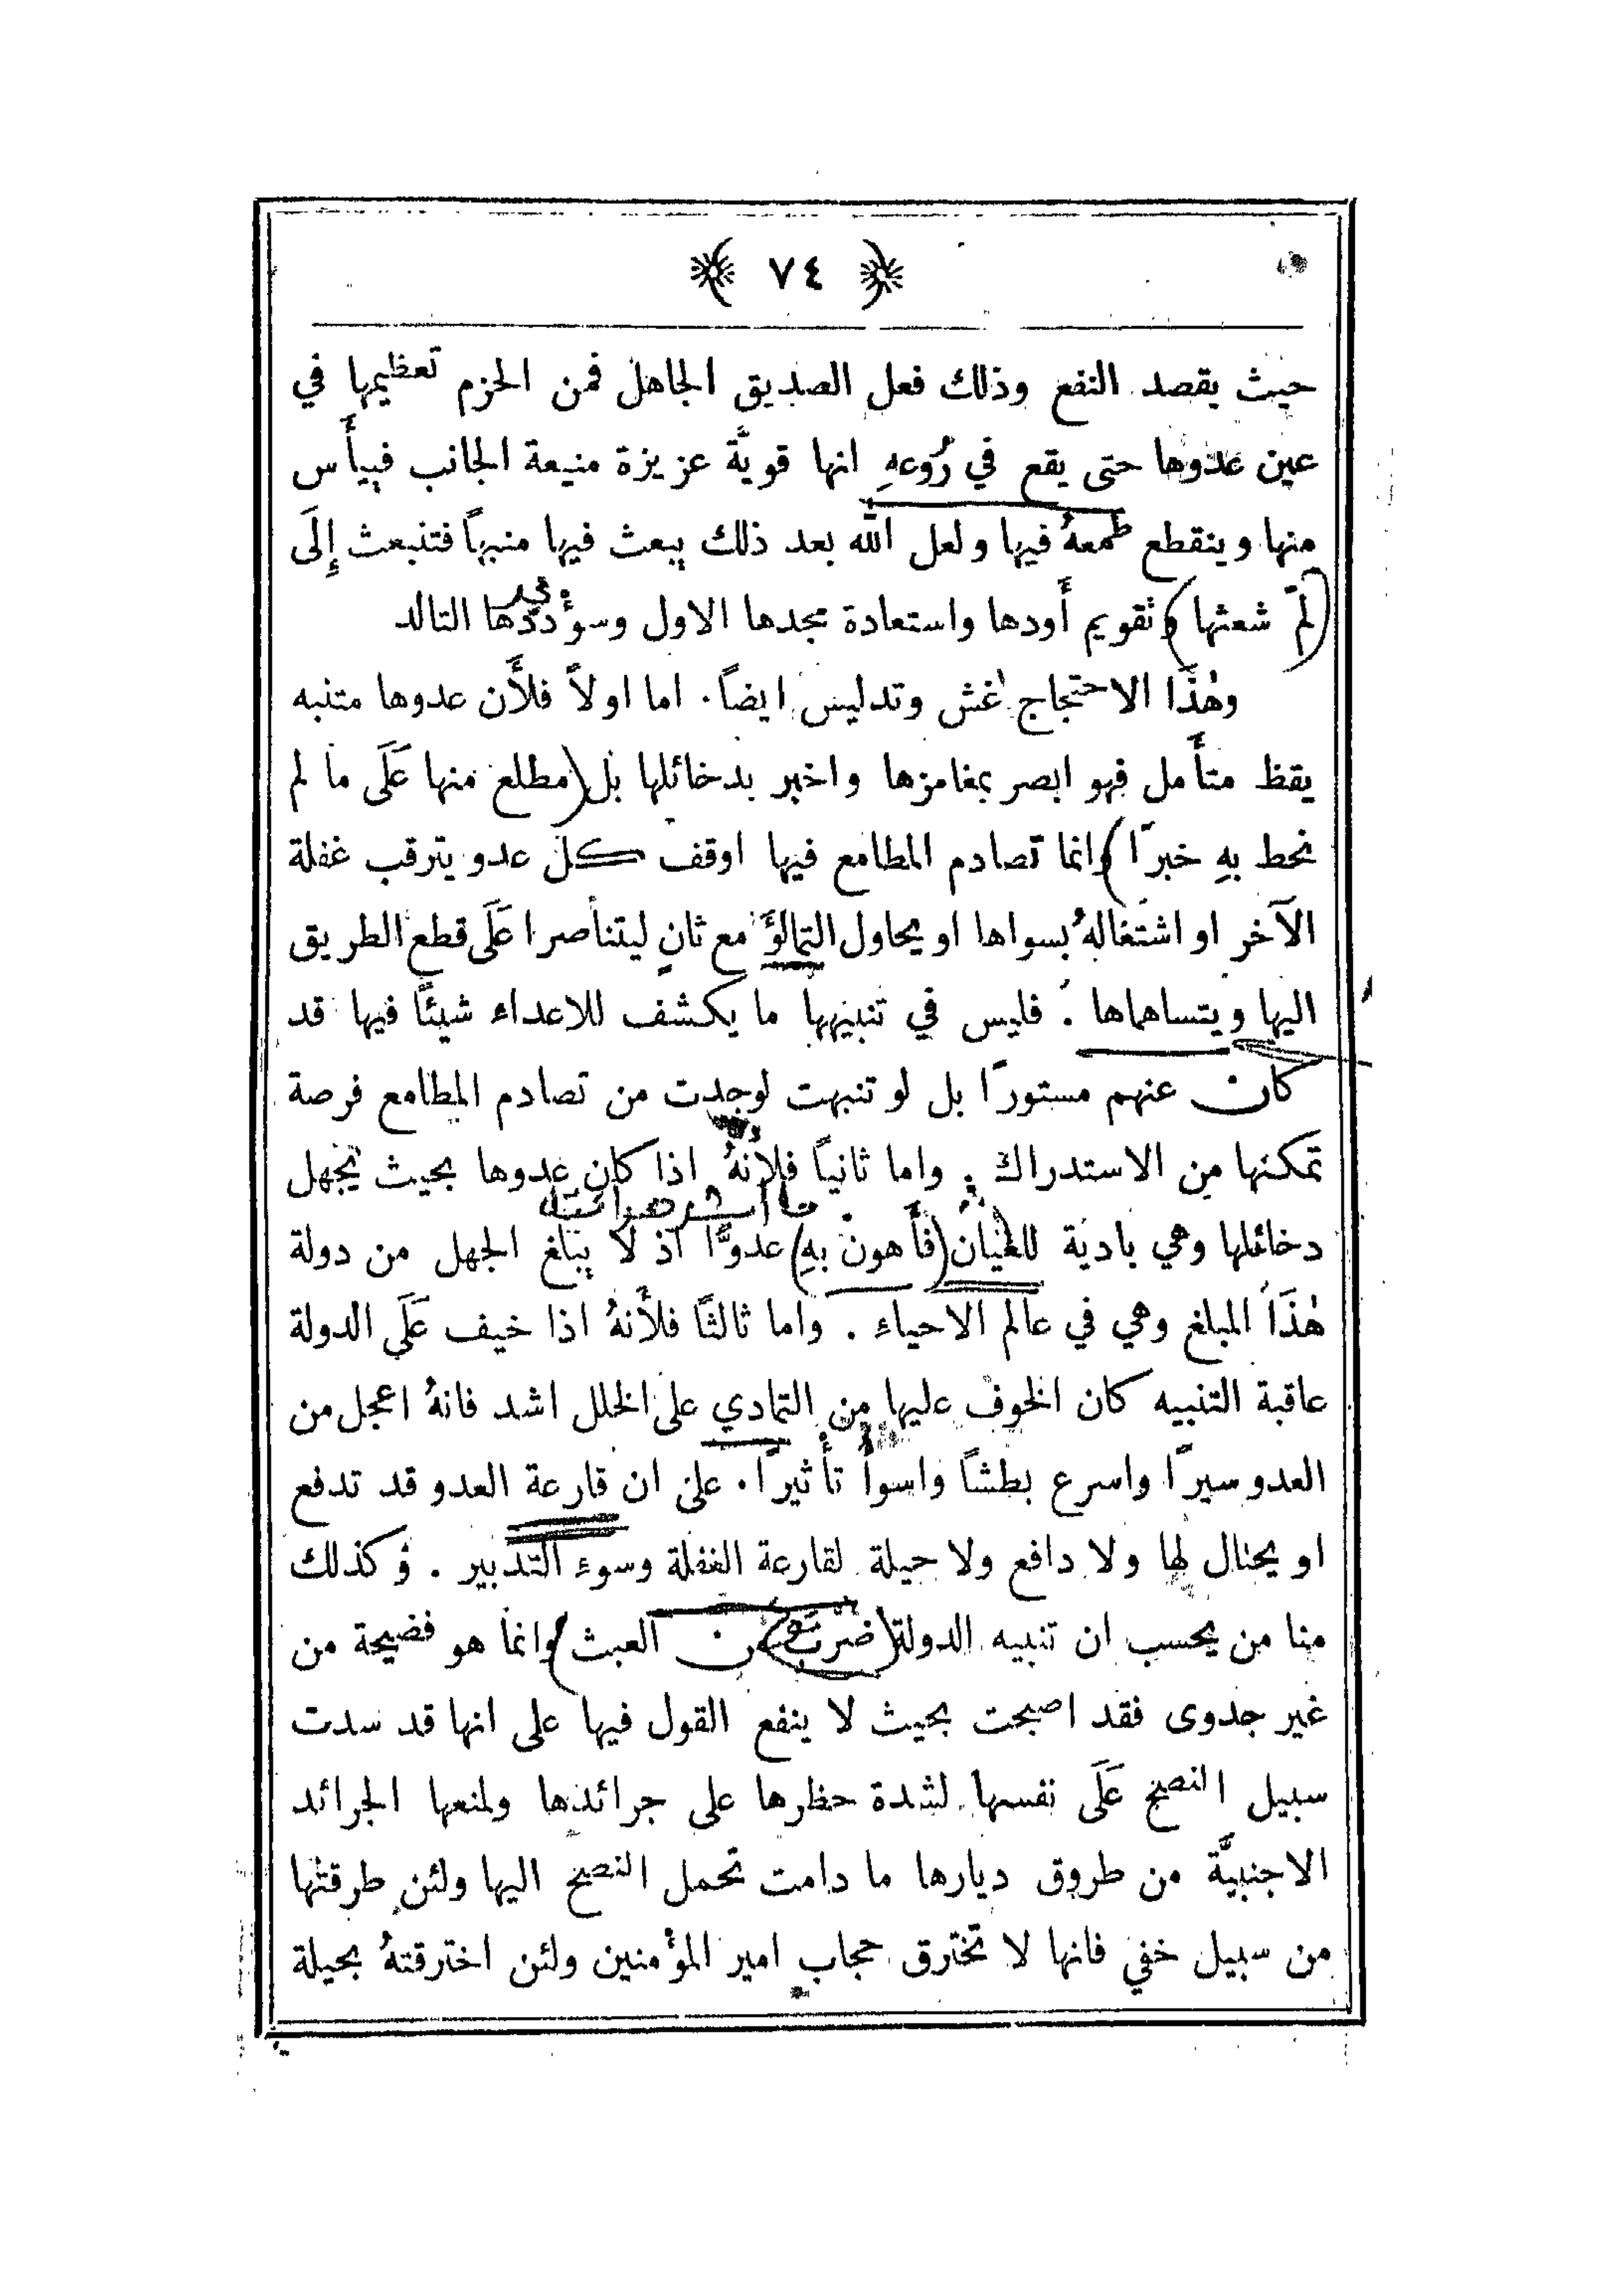 ٧٤
حيث يقصد النفع وذلك فعل الصديق الجاهل فمن الحزم تعظيمها في
عين عدوها حتى يقع في رُوعهِ انها قويَّة عزيزة منيعة الجانب فييأَس
منها وينقطع طمعهُ فيها ولعل الله بعد ذلك يبعث فيها منبهاً فتنبعث إِلَى
(لمّ شعثها) وتقويم أَودها واستعادة مجدها الاول وسؤددها التالد
وهٰذَا الاحتجاج غش وتدليس ايضاً. اما اولاً فلأَن عدوها متنبه
يقظ متأَمل فهو ابصر بمغامزها واخبر بدخائلها بل (مطلع منها عَلَى ما لم
نحط بهِ خبرًا) وانما تصادم المطامع فيها اوقف كل عدو يترقب غفلة
الآخر او اشتغالهُ بسواها او يحاول التمالؤَ مع ثانٍ ليتناصرا عَلَى قطع الطريق
اليها ويتساهماها . فليس في تنبيهها ما يكشف للاعداء شيئًا فيها قد
كان عنهم مستورًا بل لو تنبهت لوجدت من تصادم المطامع فرصة
تمكنها من الاستدراك . واما ثانياً فلانهُ اذا كان عدوها بحيث يجهل
دخائلها وهي بادية للعيان (فأَهون بهِ) عدوًّا اذ لا يبلغ الجهل من دولة
هٰذَا المبلغ وهي في عالم الاحياء . واما ثالثًا فلأَنهُ اذا خيف عَلَى الدولة
عاقبة التنبيه كان الخوف عليها من التمادي على الخلل اشد فانهُ اعجل من
العدو سيرًا واسرع بطشًا واسوأُ تأْثيرًا. على ان قارعة العدو قد تدفع
او يحتال لها ولا دافع ولا حيلة لقارعة الغفلة وسوء التدبير . وكذلك
منا من يحسب ان تنبيه الدولة (ضرب من العبث) وانما هو فضيحة من
غير جدوى فقد اصبحت بحيث لا ينفع القول فيها على انها قد سدت
سبيل النصح عَلَى نفسها لشدة حظرها على جرائدها ولمنعها الجرائد
الاجنبيَّة من طروق ديارها ما دامت تحمل النصح اليها ولئن طرقتها
من سبيل خفي فانها لا تخترق حجاب امير المؤمنين ولئن اخترقتهُ بحيلة